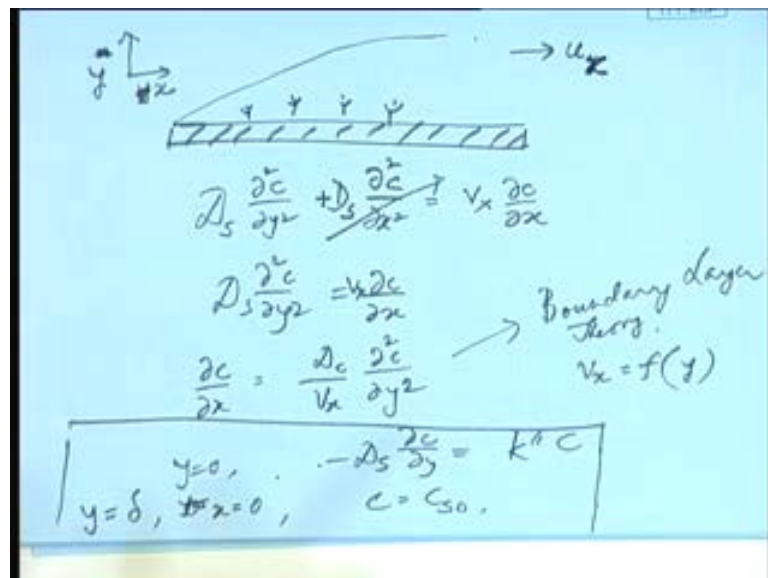 y x → u_x
D_s ∂²c/∂y² + D_s ∂²c/∂x² = v_x ∂c/∂x
D_s ∂²c/∂y² = v_x ∂c/∂x
∂c/∂x = D_c/V_x ∂²c/∂y² → Boundary Layer
Theory.
v_x = f(y)
y=0, -D_s ∂c/∂y = k" C
y=δ, x=0, c = C_so.